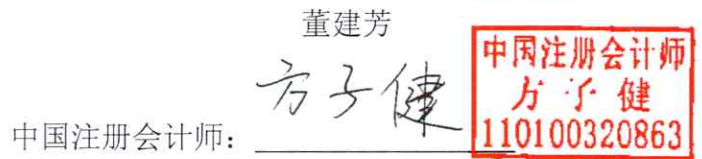 董建芳
方子健
中国注册会计师:
中国注册会计师
方子健
110100320863